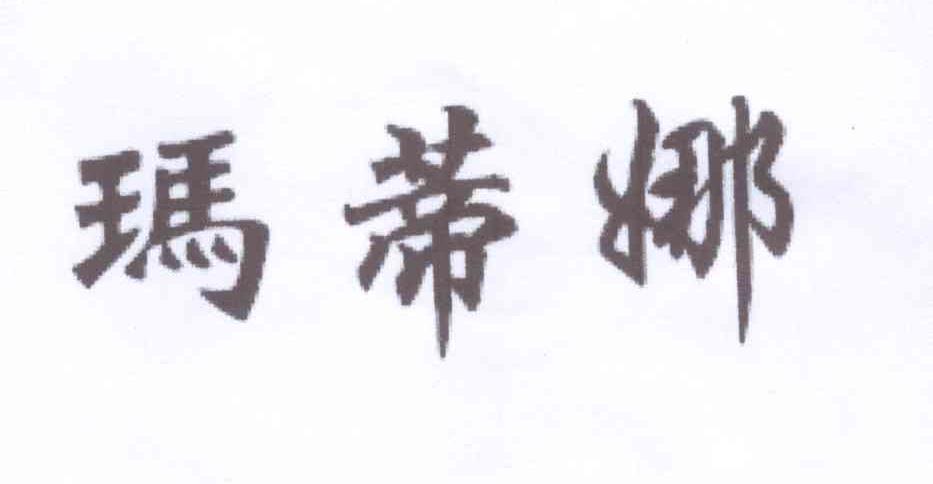 瑪蒂娜